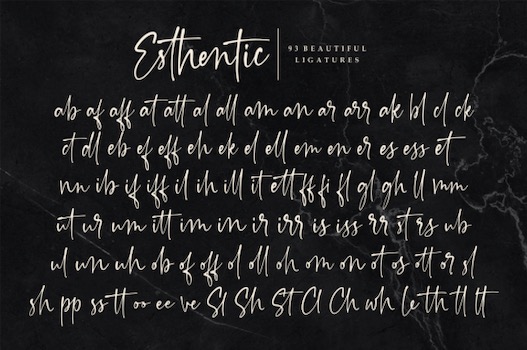 Esthentic
93 BEAUTIFUL
LIGATURES
ab af aff at att al all am an ar arr ak bl cl ck
ct dll eb ef eff eh ek el ell em en er es ess et
nn ib if iff il ih ill it ett ff fi fl gl gh ll mm
ut ur um itt im in ir irr is iss rr st rs ub
ul un uh ob of off ol oll oh om on ot os ott or sl
sh pp ss tt oo ee ve Sl Sh St Cl Ch wh le th tl lt